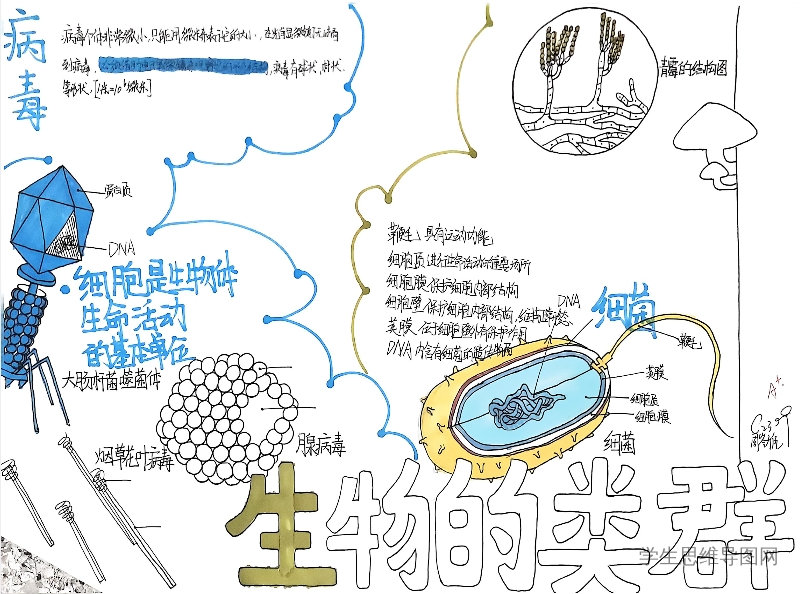 病毒
病毒个体非常微小,只能用纳米来表示它的大小,在光学显微镜下无法看
到病毒,
病毒有球状、杆状、
等形状。
蛋白质
DNA
细胞是生物体
生命活动
的基本单位
大肠杆菌噬菌体
烟草花叶病毒
腺病毒
青霉的结构图
鞭毛:具有运动功能
细胞质:进行生命活动的重要场所
细胞膜:保护细胞内部结构
细胞壁:保护细胞内部结构,维持形态
荚膜:位于细胞壁外有保护作用
DNA:内含有细菌的遗传物质
DNA
细菌
鞭毛
荚膜
细胞质
细胞膜
细菌
A+
生物的类群
学生思维导图网